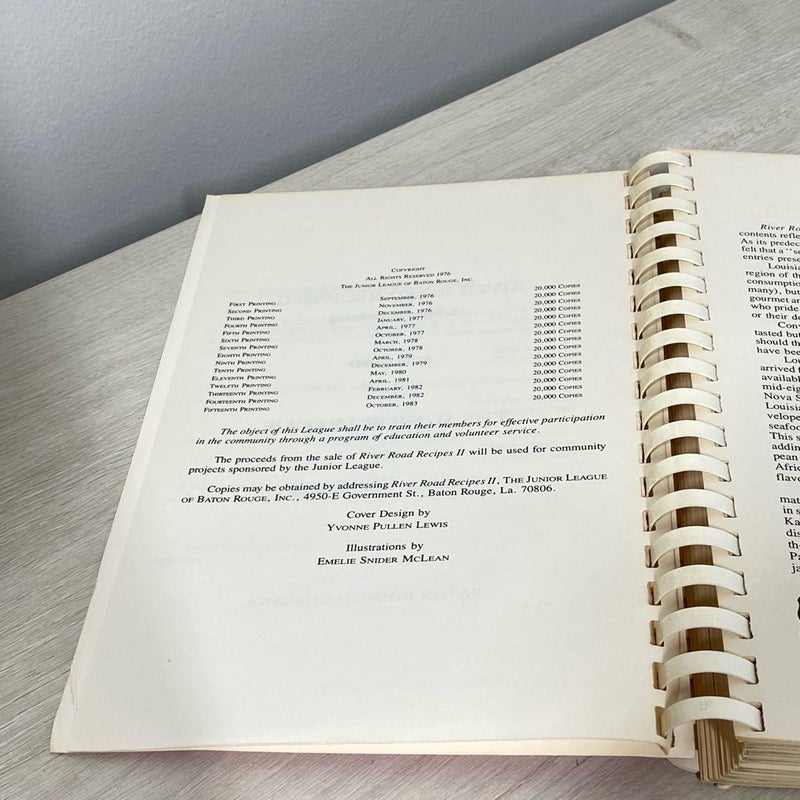 COPYRIGHT
ALL RIGHTS RESERVED 1976
THE JUNIOR LEAGUE OF BATON ROUGE, INC.
FIRST PRINTING SEPTEMBER, 1976 20,000 COPIES
SECOND PRINTING NOVEMBER, 1976 20,000 COPIES
THIRD PRINTING DECEMBER, 1976 20,000 COPIES
FOURTH PRINTING JANUARY, 1977 20,000 COPIES
FIFTH PRINTING APRIL, 1977 20,000 COPIES
SIXTH PRINTING OCTOBER, 1977 20,000 COPIES
SEVENTH PRINTING MARCH, 1978 20,000 COPIES
EIGHTH PRINTING OCTOBER, 1978 20,000 COPIES
NINTH PRINTING APRIL, 1979 20,000 COPIES
TENTH PRINTING DECEMBER, 1979 20,000 COPIES
ELEVENTH PRINTING MAY, 1980 20,000 COPIES
TWELFTH PRINTING APRIL, 1981 20,000 COPIES
THIRTEENTH PRINTING FEBRUARY, 1982 20,000 COPIES
FOURTEENTH PRINTING DECEMBER, 1982 20,000 COPIES
FIFTEENTH PRINTING OCTOBER, 1983 20,000 COPIES
The object of this League shall be to train their members for effective participation
in the community through a program of education and volunteer service.
The proceeds from the sale of River Road Recipes II will be used for community
projects sponsored by the Junior League.
Copies may be obtained by addressing River Road Recipes II, THE JUNIOR LEAGUE
OF BATON ROUGE, INC., 4950-E Government St., Baton Rouge, La. 70806.
Cover Design by
YVONNE PULLEN LEWIS
Illustrations by
EMELIE SNIDER MCLEAN
River Ro
contents refle
As its predec
felt that a "se
entries prese
Louisi
region of th
consumptio
many), but
gourmet an
who pride
or their de
Con
tasted but
should th
have been
Lou
arrived f
available
mid-eig
Nova S
Louisi
velope
seafoo
This s
adding
pean
Afric
flavo
mat
in s
Ka
dis
the
Pa
ja